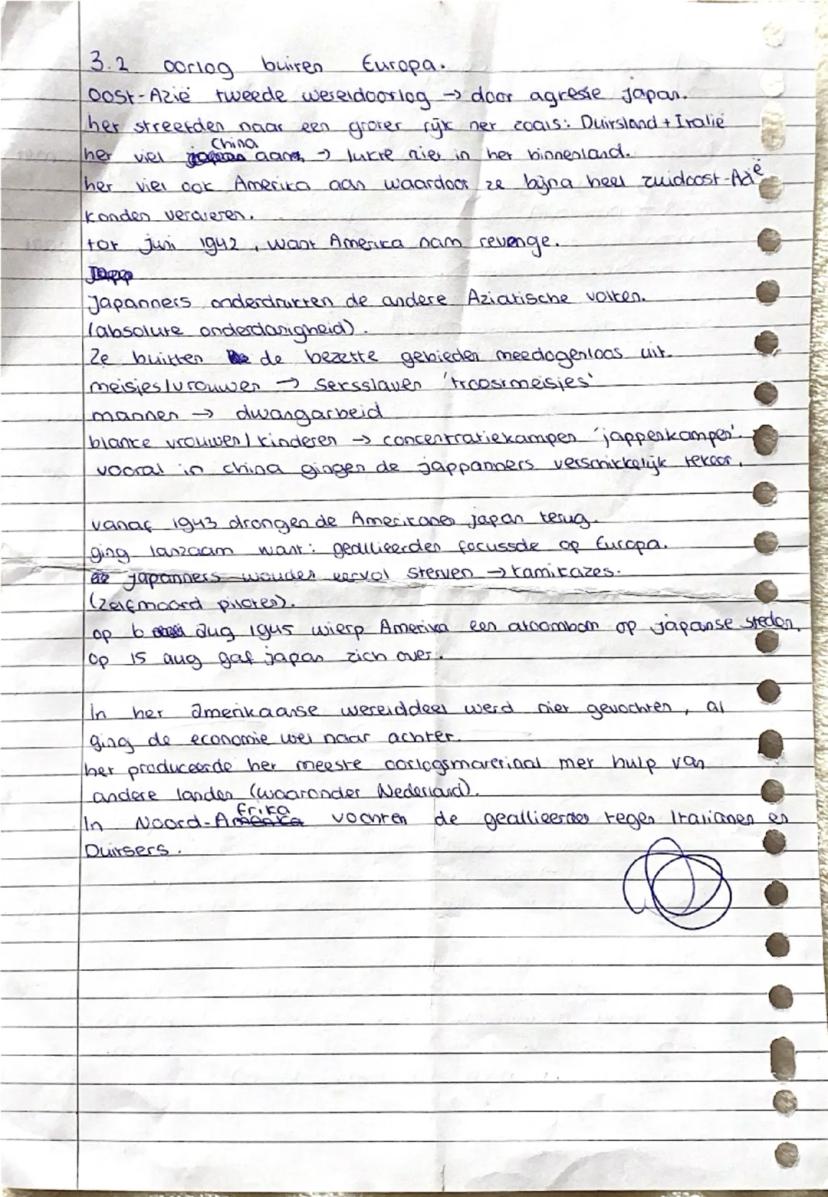 3.2 oorlog buiten Europa.
Oost-Azië tweede wereldoorlog → door agresie japan.
het streefden naar een groter rijk net zoals: Duitsland + Italië
het viel China aan → lukte niet in het binnenland.
het viel ook Amerika aan waardoor ze bijna heel zuidoost-Azië
konden veroveren.
tot juni 1942, want Amerika nam revenge.
Japanners onderdrukten de andere Aziatische volken.
(absolute onderdanigheid).
Ze buitten de bezette gebieden meedogenloos uit.
meisjes/vrouwen → seksslaven 'troostmeisjes'
mannen → dwangarbeid
blanke vrouwen/kinderen → concentratiekampen 'jappenkampen'.
vooral in china gingen de jappanners verschrikkelijk tekeer.
vanaf 1943 drongen de Amerikanen japan terug.
ging lanzaam want: geallieerden focussde op Europa.
japanners wouden eervol sterven → kamikazes.
(zelfmoord piloten).
op 6 aug 1945 wierp Amerika een atoombom op japanse steden.
op 15 aug gaf japan zich over.
In het amerikaanse werelddeel werd niet gevochten, al
ging de economie wel naar achter.
het produceerde het meeste oorlogsmateriaal met hulp van
andere landen (waaronder Nederland).
In Noord-Afrika vochten de geallieerden tegen Italianen en
Duitsers.